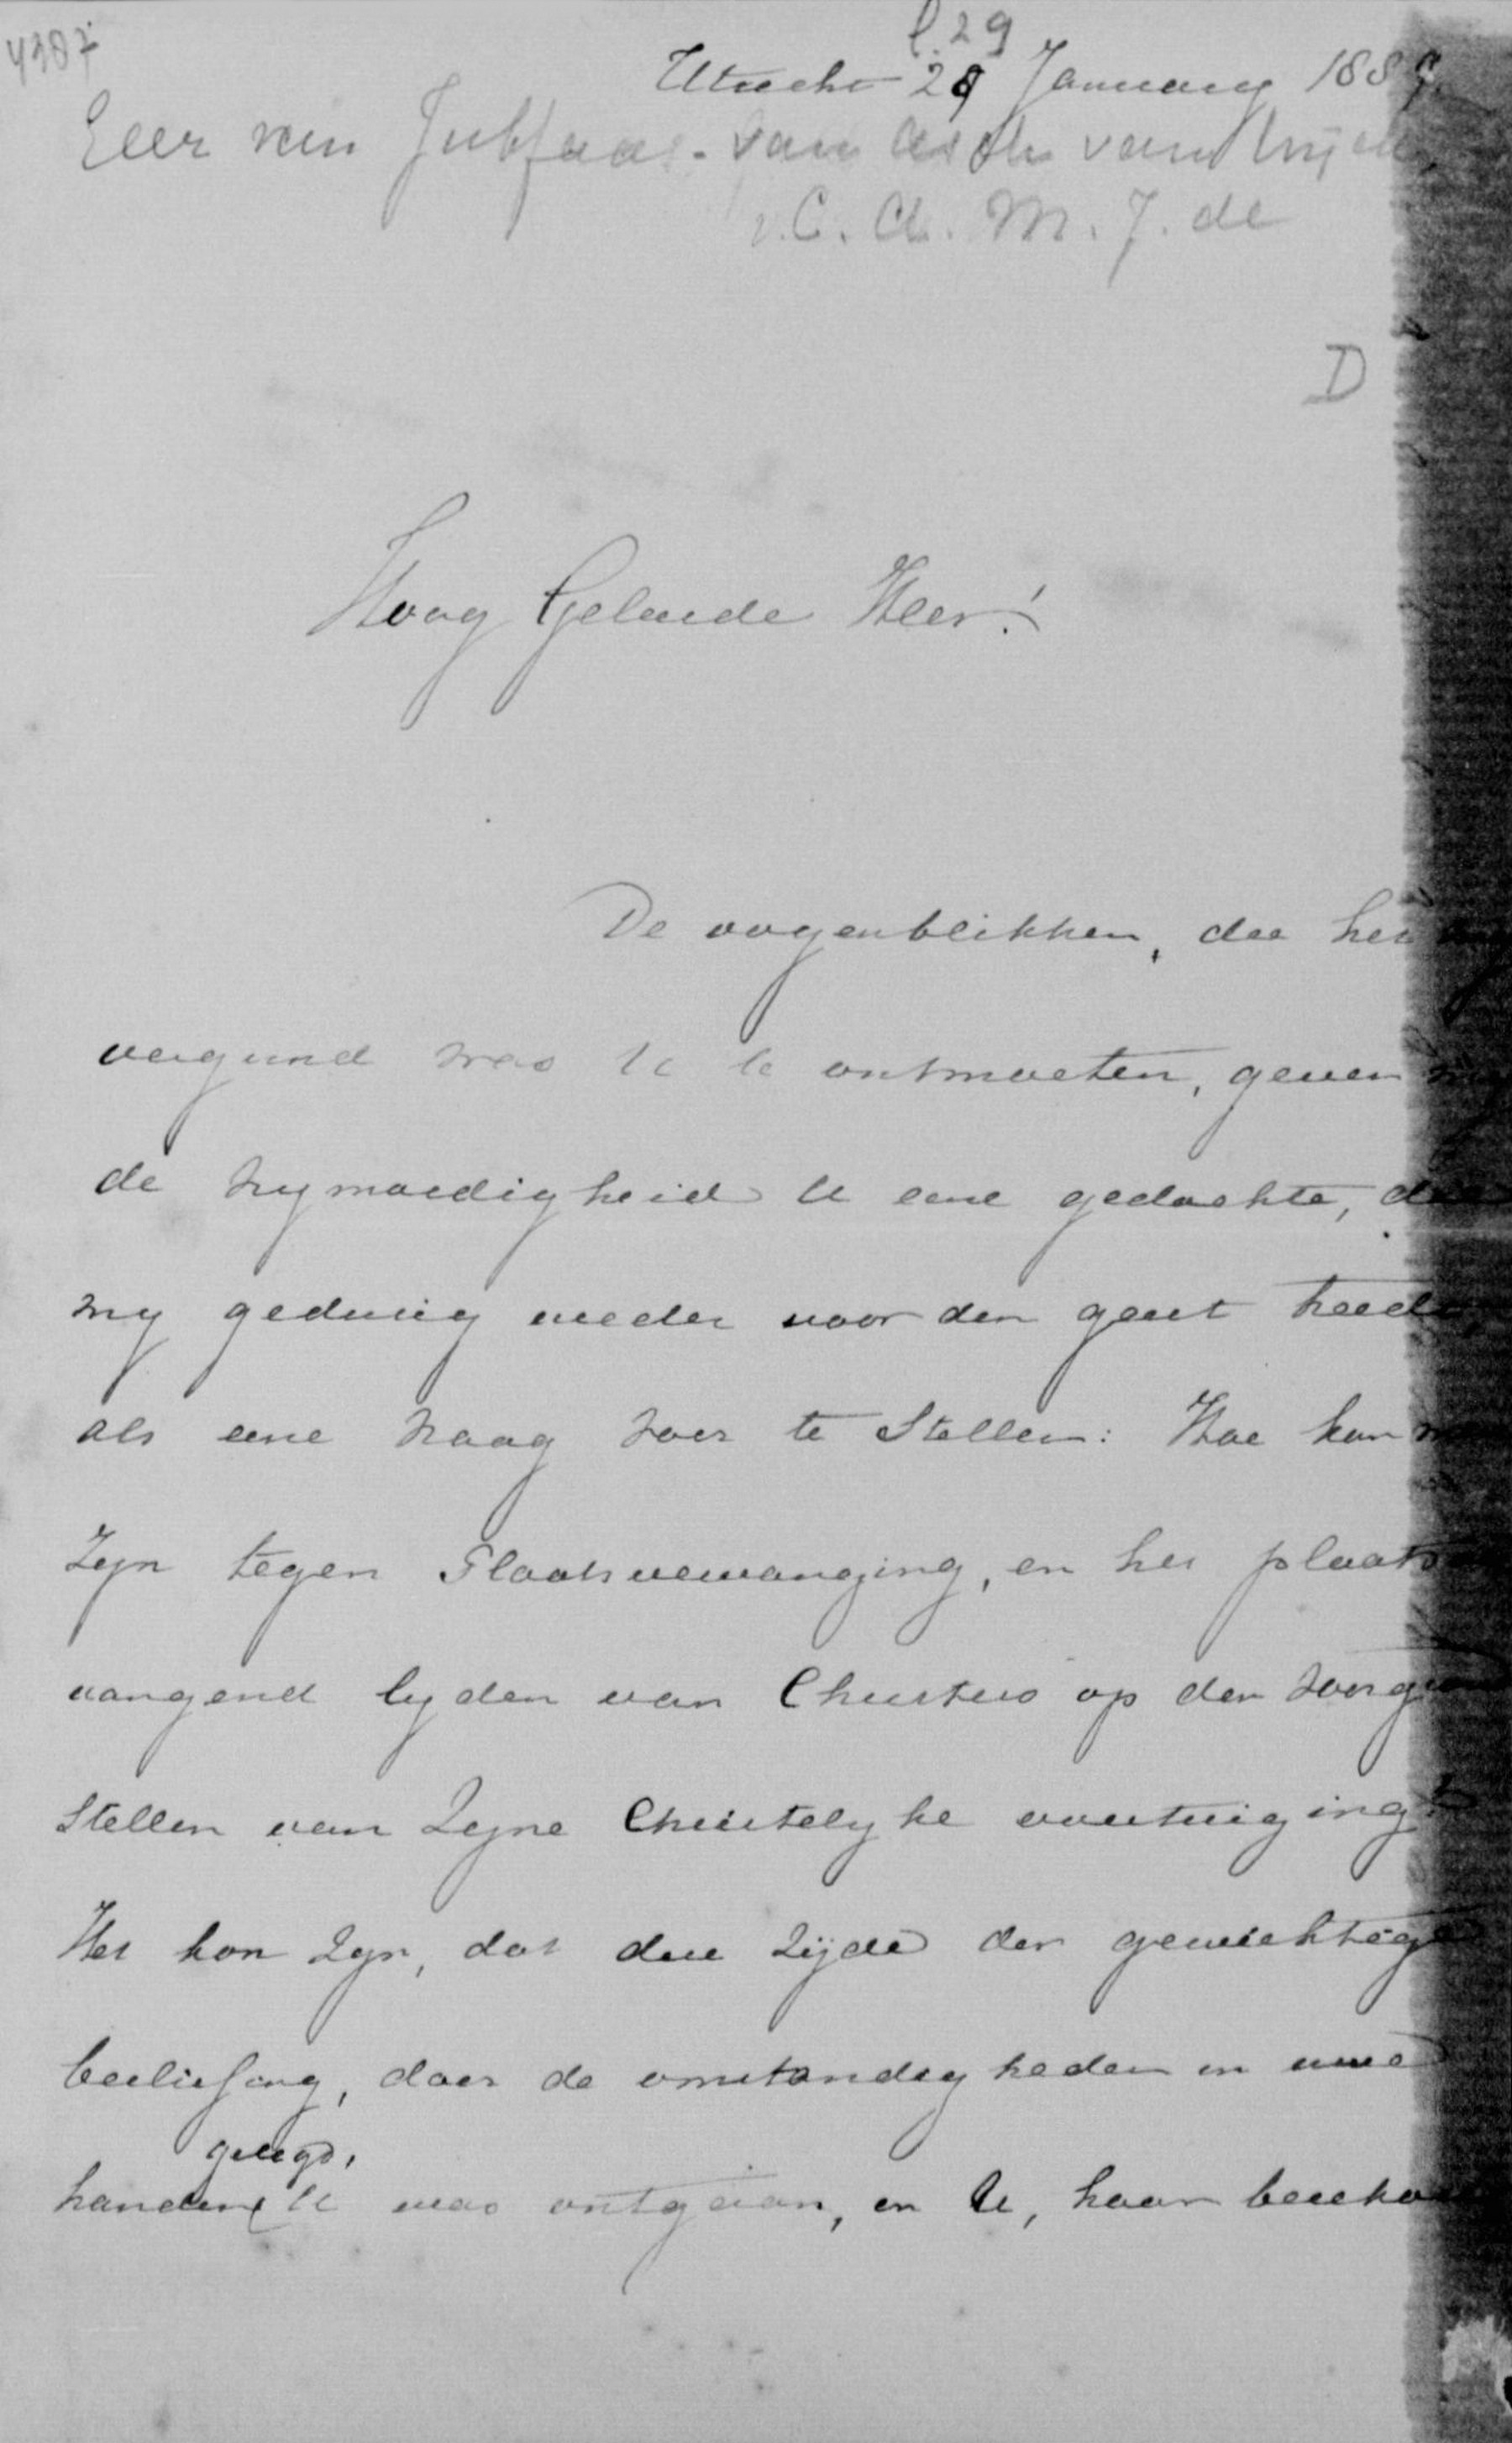 4307
l. 29
Utrecht 29 January 1889.
Eeer van Jutfaas - van Asch van Wijck,
v. C. A. M. J. de
D
Hoog Geleerde Heer!
De oogenblikken, die het
vergund was U te ontmoeten, geven
de vrymoedigheid U eene gedachte, die
my gedurig weder voor den geest treedt,
als eene vraag voor te stellen: Hoe kan
Zyn tegen Plaatsvervanging, en het plaats
vangend lyden van Christus op den voorgrond
stellen van Zyne Christelyke overtuiging?
Het kon Zyn, dat deze zijde der gewichtige
beslissing, door de omstandigheden in uwe
gelegd,
handen U was ontgaan, en U, haar